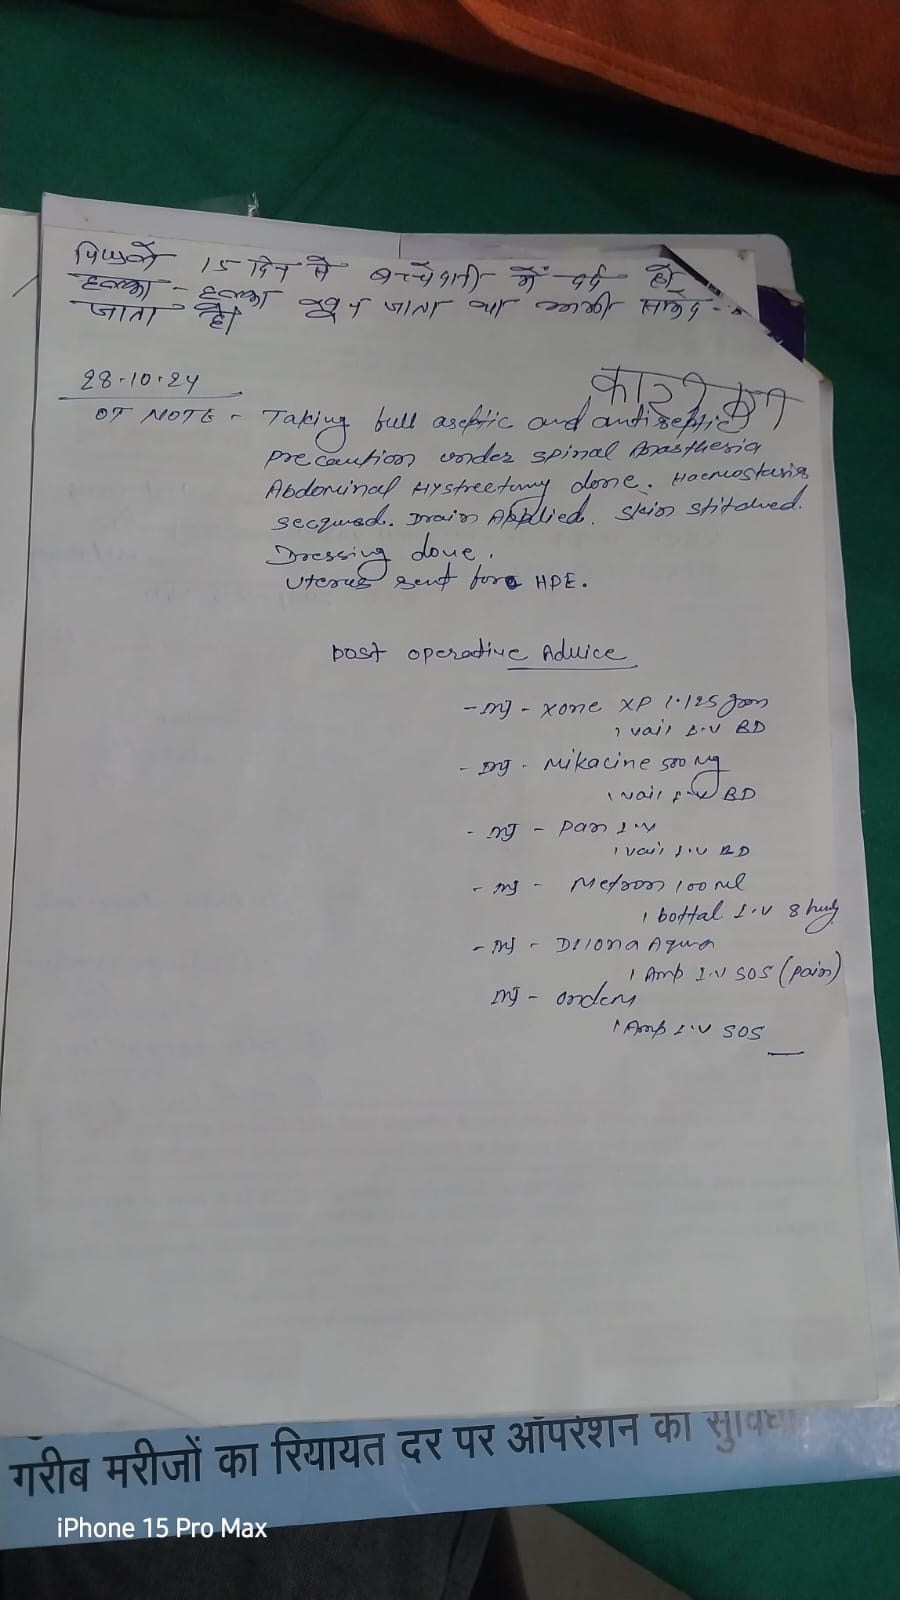 पिछले 15 दिन से बच्चेदानी में दर्द हो
हल्का - हल्का खून जाता था कभी सफेद
जाता है।
28.10.24
OT NOTE - Taking full aseptic and antiseptic
precaution under spinal Anasthesia
Abdominal Hystreetumy done. Haemostasis
secqured. Drain Applied. Skin stitched.
Dressing done.
Uterus sent for HPE.
Post operative Advice
- Inj - Xone XP 1.125 gm
1 vail I.V BD
- Inj - Mikacine 500 mg
1 vail I.V BD
- Inj - Pan I.V
1 vail I.V BD
- Inj - Metron 100 ml
1 bottal I.V 8 hrly
- Inj - Dilona Aqua
1 Amp I.V SOS (pain)
Inj - ondem
1 Amp I.V SOS
गरीब मरीजों का रियायत दर पर ऑपरेशन की सुविधा
iPhone 15 Pro Max